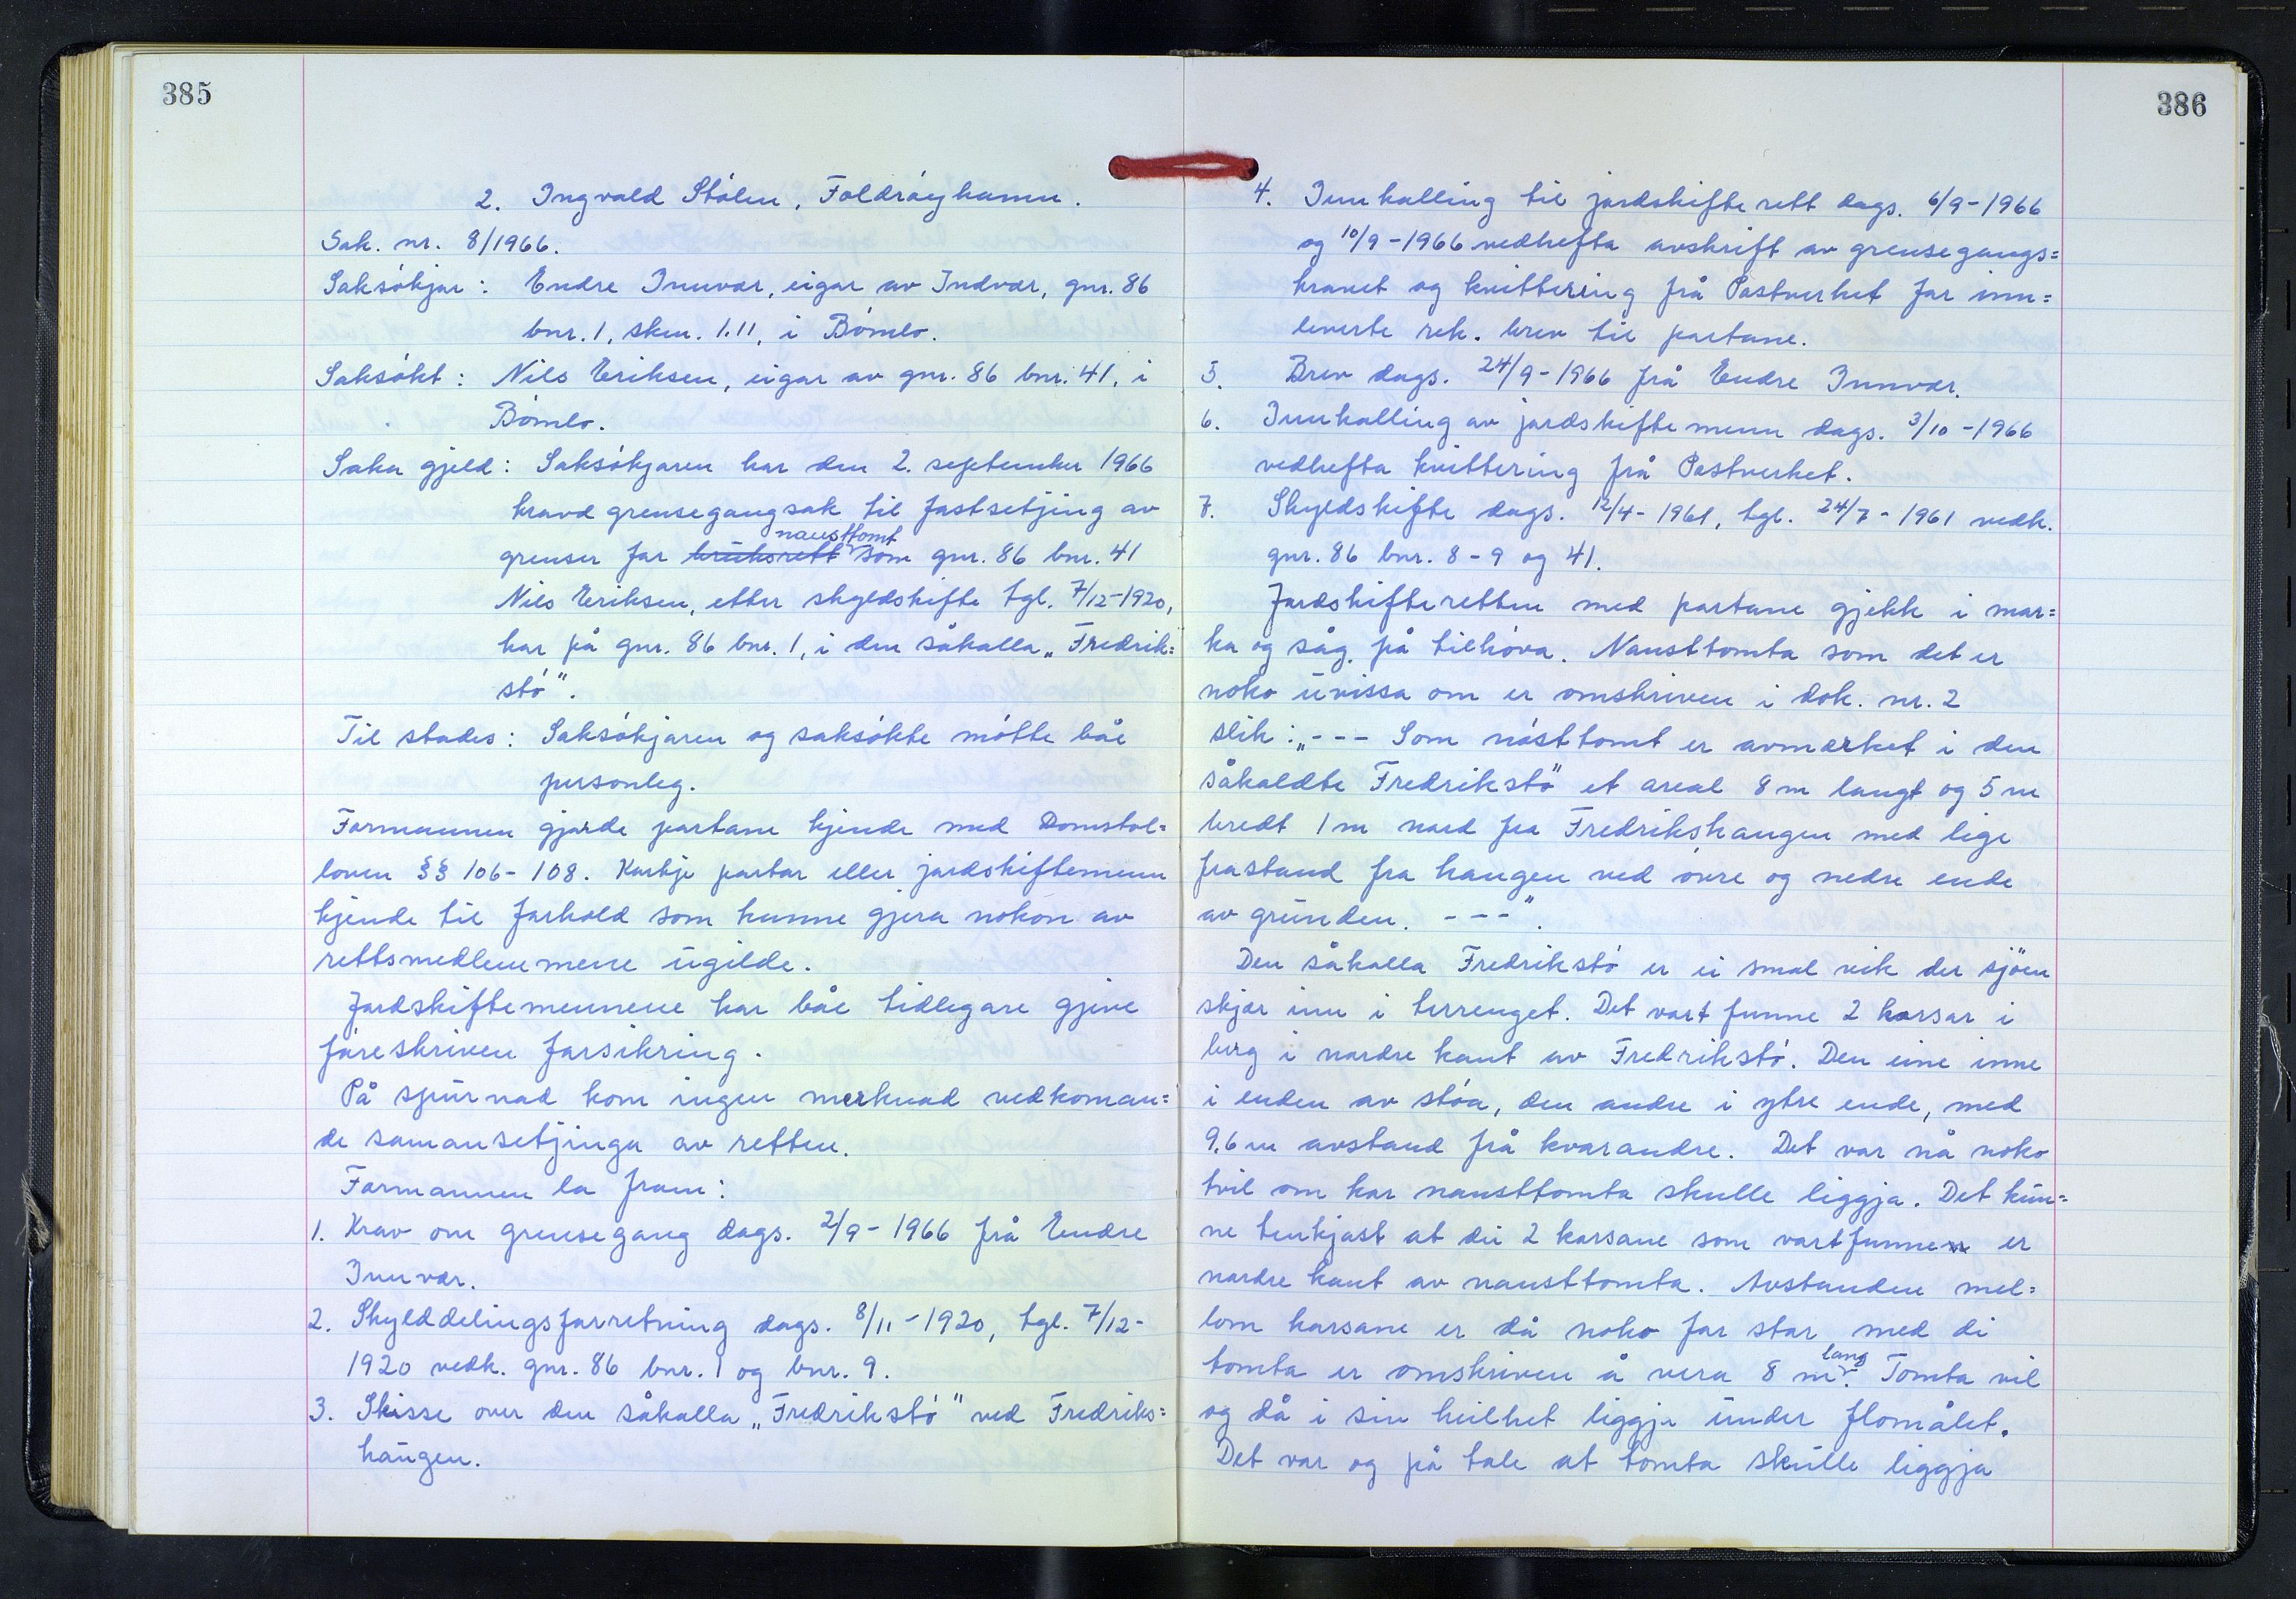 385
2. Ingvald Stölen, Foldröyhamn.
Sak. nr. 8/1966.
Saksökjar: Endre Innvær, eigar av Indvær, gnr. 86
bnr. 1, skm. 1.11, i Bömlo.
Saksökt: Nils Eriksen, eigar av gnr. 86 bnr. 41, i
Bömlo.
Saka gjeld: Saksökjaren har den 2. september 1966
kravd grensegangsak til fastsetjing av
nausttomt
grenser for bruksrett som gnr. 86 bnr. 41
Nils Eriksen, etter skyldskifte tgl. 7/12-1920,
har på gnr. 86 bnr. 1, i den såkalla „Fredrik=
stö".
Til stades: Saksökjaren og saksökte mötte båe
personleg.
Formannen gjorde partane kjende med Domstol=
loven §§ 106-108. Korkje partar eller jordskiftemenn
kjende til forhold som kunne gjera nokon av
rettsmedlemmene ugilde.
Jordskiftemennene har båe tidlegare gjeve
föreskriven forsikring.
På spurnad kom ingen merknad vedkoman=
de samansetjinga av retten.
Formannen la fram:
1. Krav om grensegang dags. 2/9-1966 frå Endre
Innvær.
2. Skylddelingsforretning dags. 8/11-1920, tgl. 7/12-
1920 vedk. gnr. 86 bnr. 1 og bnr. 9.
3. Skisse over den såkalla „Fredrikstö" ved Fredriks=
haugen.
386
4. Innkalling til jordskifterett dags. 6/9-1966
og 10/9-1966 vedhefta avskrift av grensegangs=
kravet og kvittering frå Postverket for inn=
leverte rek. brev til partane.
5. Brev dags. 24/9-1966 frå Endre Innvær.
6. Innkalling av jordskiftemenn dags. 3/10-1966
vedhefta kvittering frå Postverket.
7. Skyldskifte dags. 12/4-1961, tgl. 24/7-1961 vedk.
gnr. 86 bnr. 8-9 og 41.
Jordskifteretten med partane gjekk i mar=
ka og såg på tilhöva. Nausttomta som det er
noko uvissa om er omskriven i dok. nr. 2
slik: „--- Som nösttomt er avmærket i den
såkaldte Fredrikstö" et areal 8 m langt og 5 m
bredt 1 m nord fra Fredrikshaugen med lige
frastand fra haugen ved övre og nedre ende
av grunden. ---".
Den såkalla Fredrikstö er ei smal vik der sjöen
skjær inn i terrenget. Det vart funne 2 korsar i
berg i nordre kant av Fredrikstö. Den eine inne
i enden av stöa, den andre i ytre ende, med
9,6 m avstand frå kvarandre. Det var nå noko
tvil om kor nausttomta skulle liggja. Det kun=
ne tenkjast at dei 2 korsane som vart funne er
nordre kant av nausttomta. Avstanden mel=
lom korsane er då noko for stor med di
lang
tomta er omskriven å vera 8 m. Tomta vil
og då i sin heilhet liggja under flomålet.
Det var og på tale at tomta skulle liggja